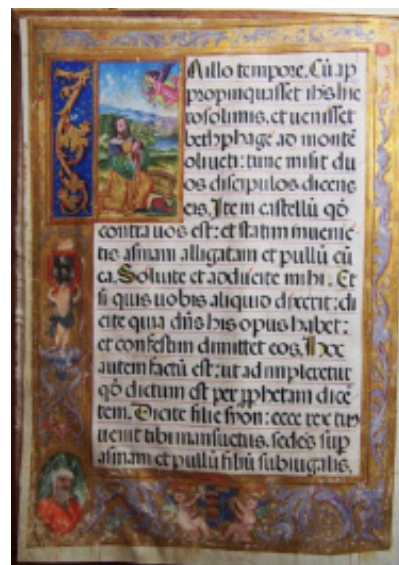 N illo tempore. Cū ap
propinquasset ihs hie
rosolimis, et uenisset
bethphage ad montē
oliueti: tunc misit du
os discipulos dicens
eis. Item castellū qd̄
contra uos est: et statim inuenie
tis asinam alligatam et pullū cū
ea. Soluite et adducite mihi. Et
si quis uobis aliquid dixerit: di
cite quia dn̄s his opus habet:
et confestim dimittet eos. Hoc
autem factū est: ut adimpleretur
qd̄ dictum est per ꝓphetam dicē
tem. Dicite filie sion: ecce rex tuus
uenit tibi mansuetus, sedēs sup
asinam et pullū filiū subiugalis,